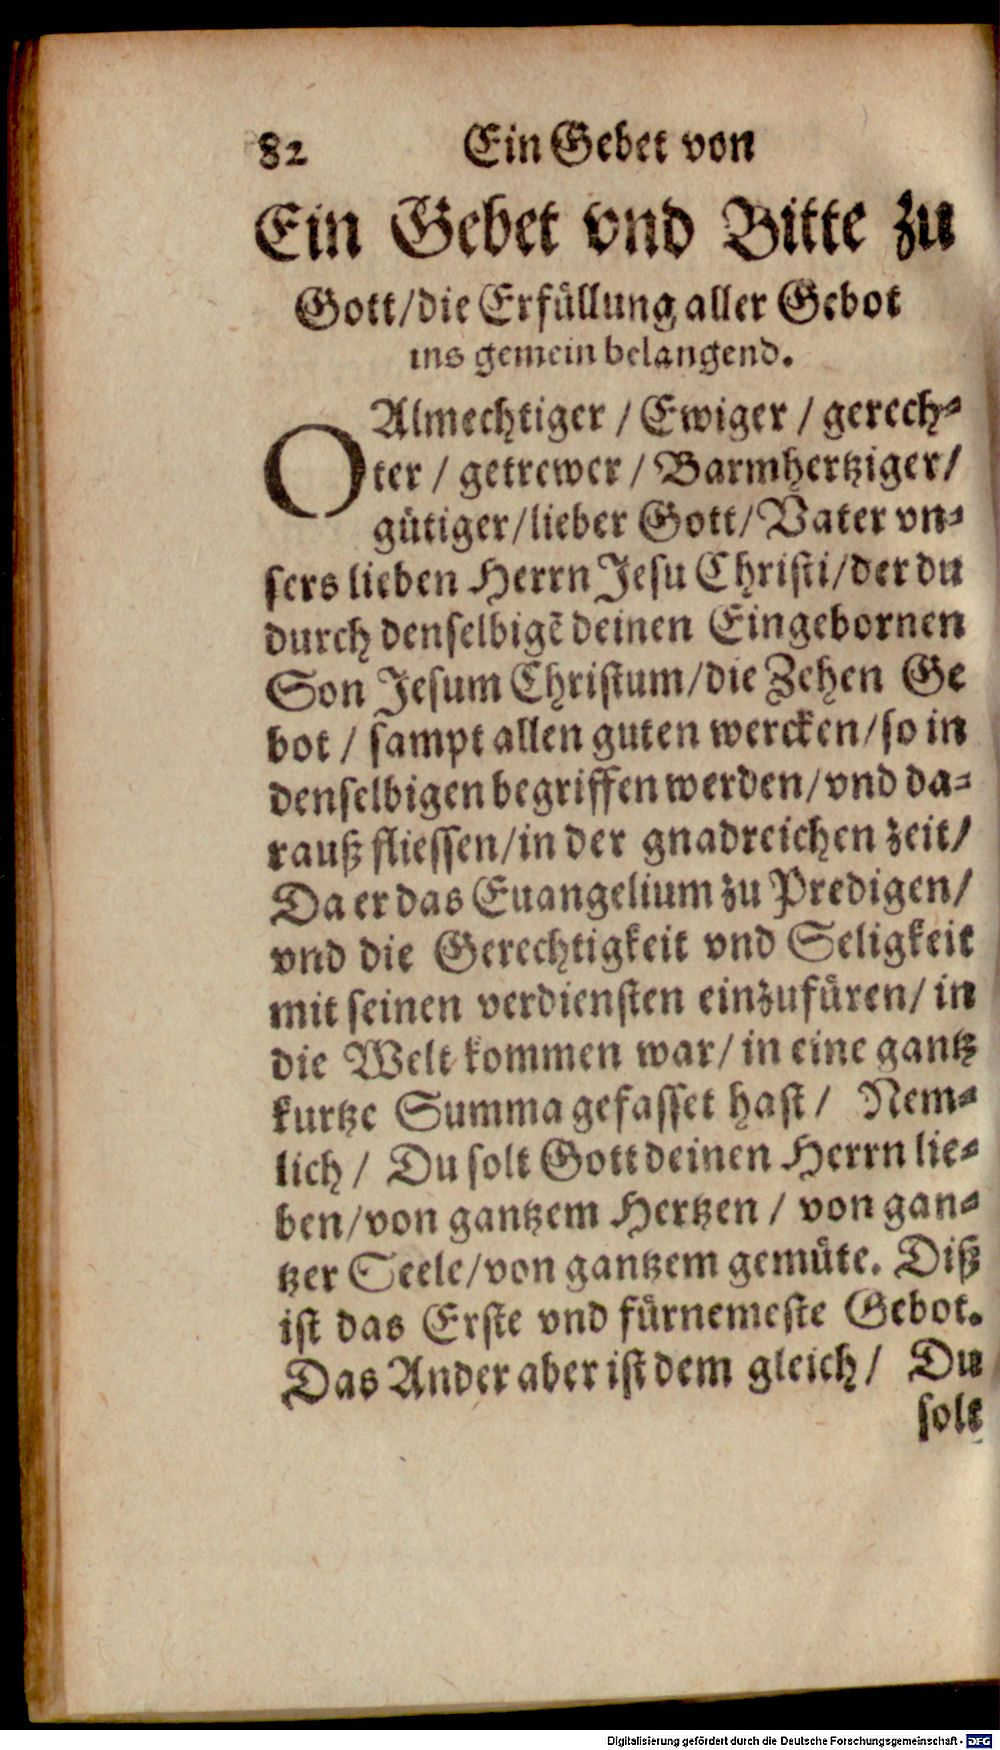 82 Ein Gebet von
Ein Gebet vnd Bitte zu
Gott/die Erfüllung aller Gebot
ins gemein belangend.
O Almechtiger / Ewiger / gerech⸗
ter / getrewer / Barmhertziger/
gütiger/lieber Gott/Vater vn⸗
sers lieben Herrn Jesu Christi/der du
durch denselbigē deinen Eingebornen
Son Jesum Christum/die Zehen Ge
bot / sampt allen guten wercken/so in
denselbigen begriffen werden/vnd da⸗
rauß fliessen/in der gnadreichen zeit/
Da er das Euangelium zu Predigen/
vnd die Gerechtigkeit vnd Seligkeit
mit seinen verdiensten einzufüren/ in
die Welt kommen war/ in eine gantz
kurtze Summa gefasset hast / Nem⸗
lich / Du solt Gott deinen Herrn lie⸗
ben/von gantzem Hertzen / von gan⸗
tzer Seele/von gantzem gemüte. Diß
ist das Erste vnd fürnemeste Gebot.
Das Ander aber ist dem gleich / Du
solt
Digitalisierung gefördert durch die Deutsche Forschungsgemeinschaft - DFG